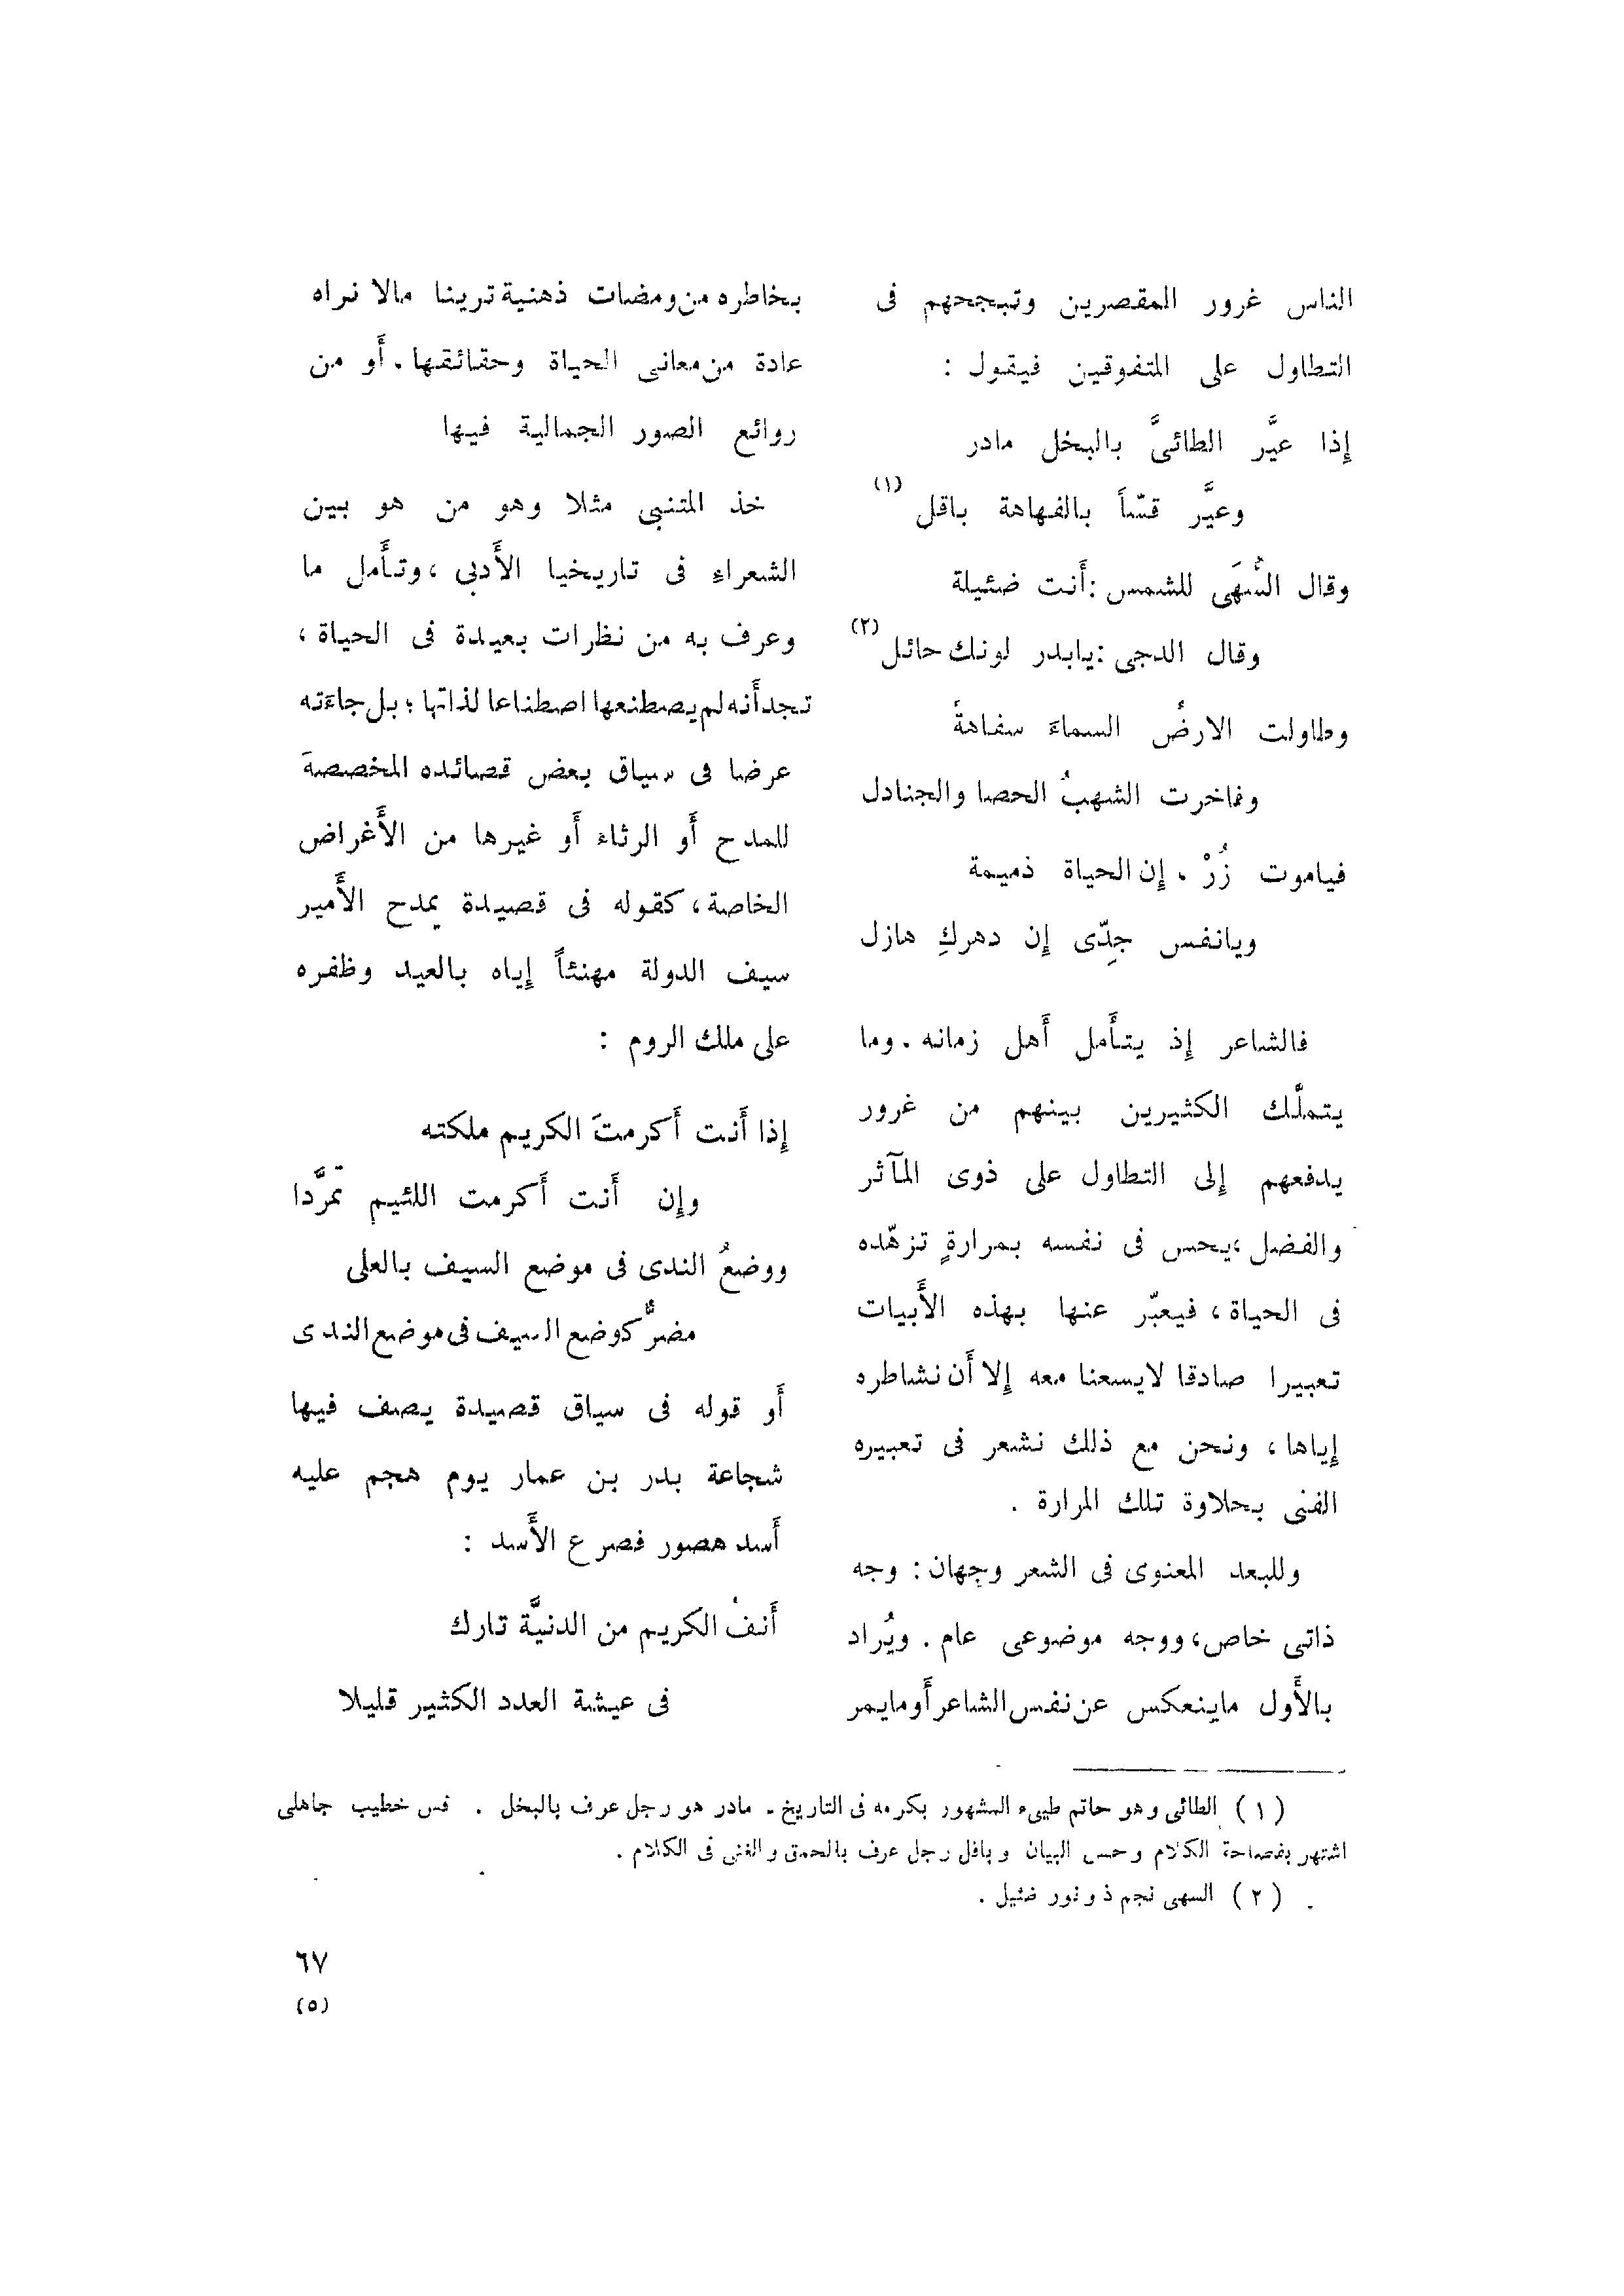 الناس غرور المقصرين وتبجحهم فى
التطاول على المتفوقين فيقول :
إذا عيَّر الطائىَّ بالبخل مادر
وعيَّر قسّاً بالفهاهة باقل (١)
وقال السُّهَى للشمس : أَنت ضئيلة
وقال الدجى : يابدر لونك حائل (٢)
وطاولت الارضُ السماءَ سفاهةً
وفاخرت الشهبُ الحصا والجنادل
فياموت زُرْ . إن الحياة ذميمة
ويانفس جِدّى إن دهركِ هازل
فالشاعر إذ يتأَمل أَهل زمانه . وما
يتملَّك الكثيرين بينهم من غرور
يدفعهم إلى التطاول على ذوى المآثر
والفضل ، يحس فى نفسه بمرارةٍ تزهّده
فى الحياة ، فيعبّر عنها بهذه الأَبيات
تعبيرا صادقا لايسعنا معه إلا أَن نشاطره
إياها ، ونحن مع ذلك نشعر فى تعبيره
الفنى بحلاوة تلك المرارة .
وللبعد المعنوى فى الشعر وجهان : وجه
ذاتى خاص ، ووجه موضوعى عام . ويُراد
بالأَول ماينعكس عن نفس الشاعر أَو مايمر
بخاطره من ومضات ذهنية ترينا مالا نراه
عادة من معانى الحياة وحقائقها . أَو من
روائع الصور الجمالية فيها
خذ المتنبى مثلا وهو من هو بين
الشعراءِ فى تاريخيا الأَدبى ، وتأَمل ما
وعرف به من نظرات بعيدة فى الحياة ،
تجد أَنه لم يصطنعها اصطناعا لذاتها ؛ بل جاءَته
عرضا فى سياق بعض قصائده المخصصة
للمدح أَو الرثاء أَو غيرها من الأَغراض
الخاصة ، كقوله فى قصيدة يمدح الأَمير
سيف الدولة مهنئاً إياه بالعيد وظفره
على ملك الروم :
إذا أَنت أَكرمتَ الكريم ملكته
وإن أَنت أَكرمت اللئيم تمرَّدا
ووضعُ الندى فى موضع السيف بالعلى
مضرٌّ كوضع السيف فى موضع الندى
أَو قوله فى سياق قصيدة يصف فيها
شجاعة بدر بن عمار يوم هجم عليه
أَسد هصور فصرع الأَسد :
أَنفُ الكريم من الدنيَّة تارك
فى عيشة العدد الكثير قليلا
( ١ ) الطائى وهو حاتم طيىء المشهور بكرمه فى التاريخ - مادر هو رجل عرف بالبخل . قس خطيب جاهلى
اشتهر بفصاحة الكلام وحسن البيان وباقل رجل عرف بالحمق والغى فى الكلام .
( ٢ ) السهى نجم ذو نور ضئيل .
٦٧
(٥)